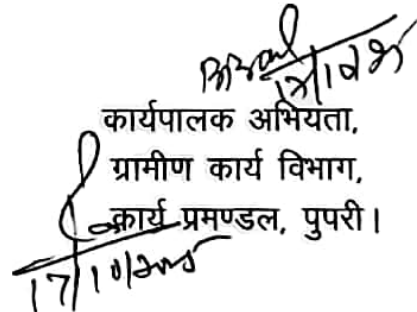 कार्यपालक अभियता,
ग्रामीण कार्य विभाग,
कार्य प्रमण्डल, पुपरी।
17/10/2025